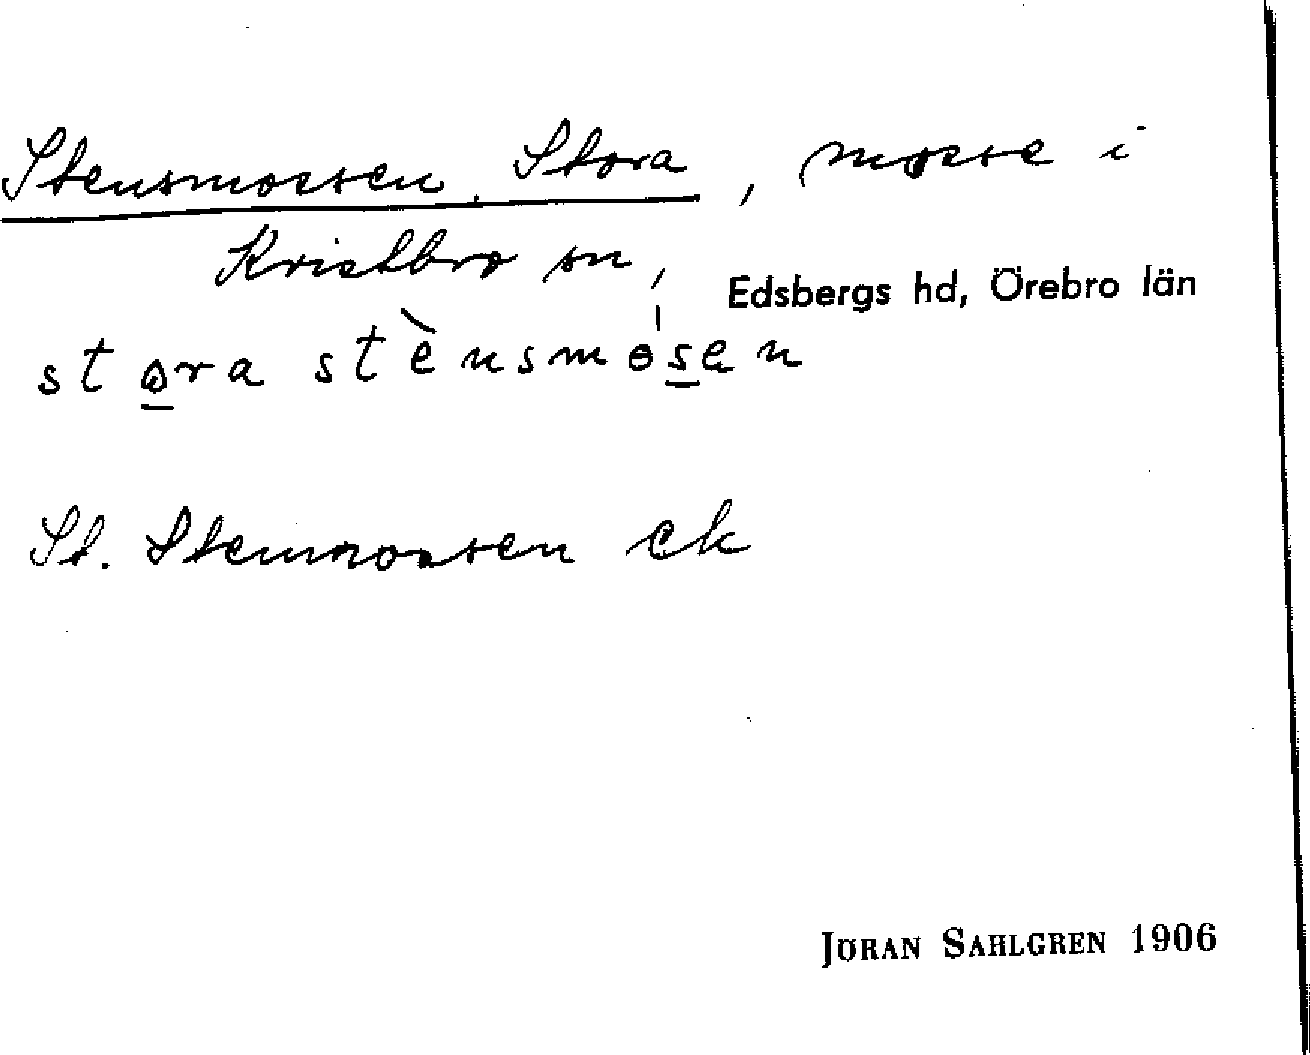 Stensmossen, Stora, mosse i
Kvistbro sn, Edsbergs hd, Örebro län
stora stènsmósen
St. Stenmossen ek
JÖRAN SAHLGREN 1906